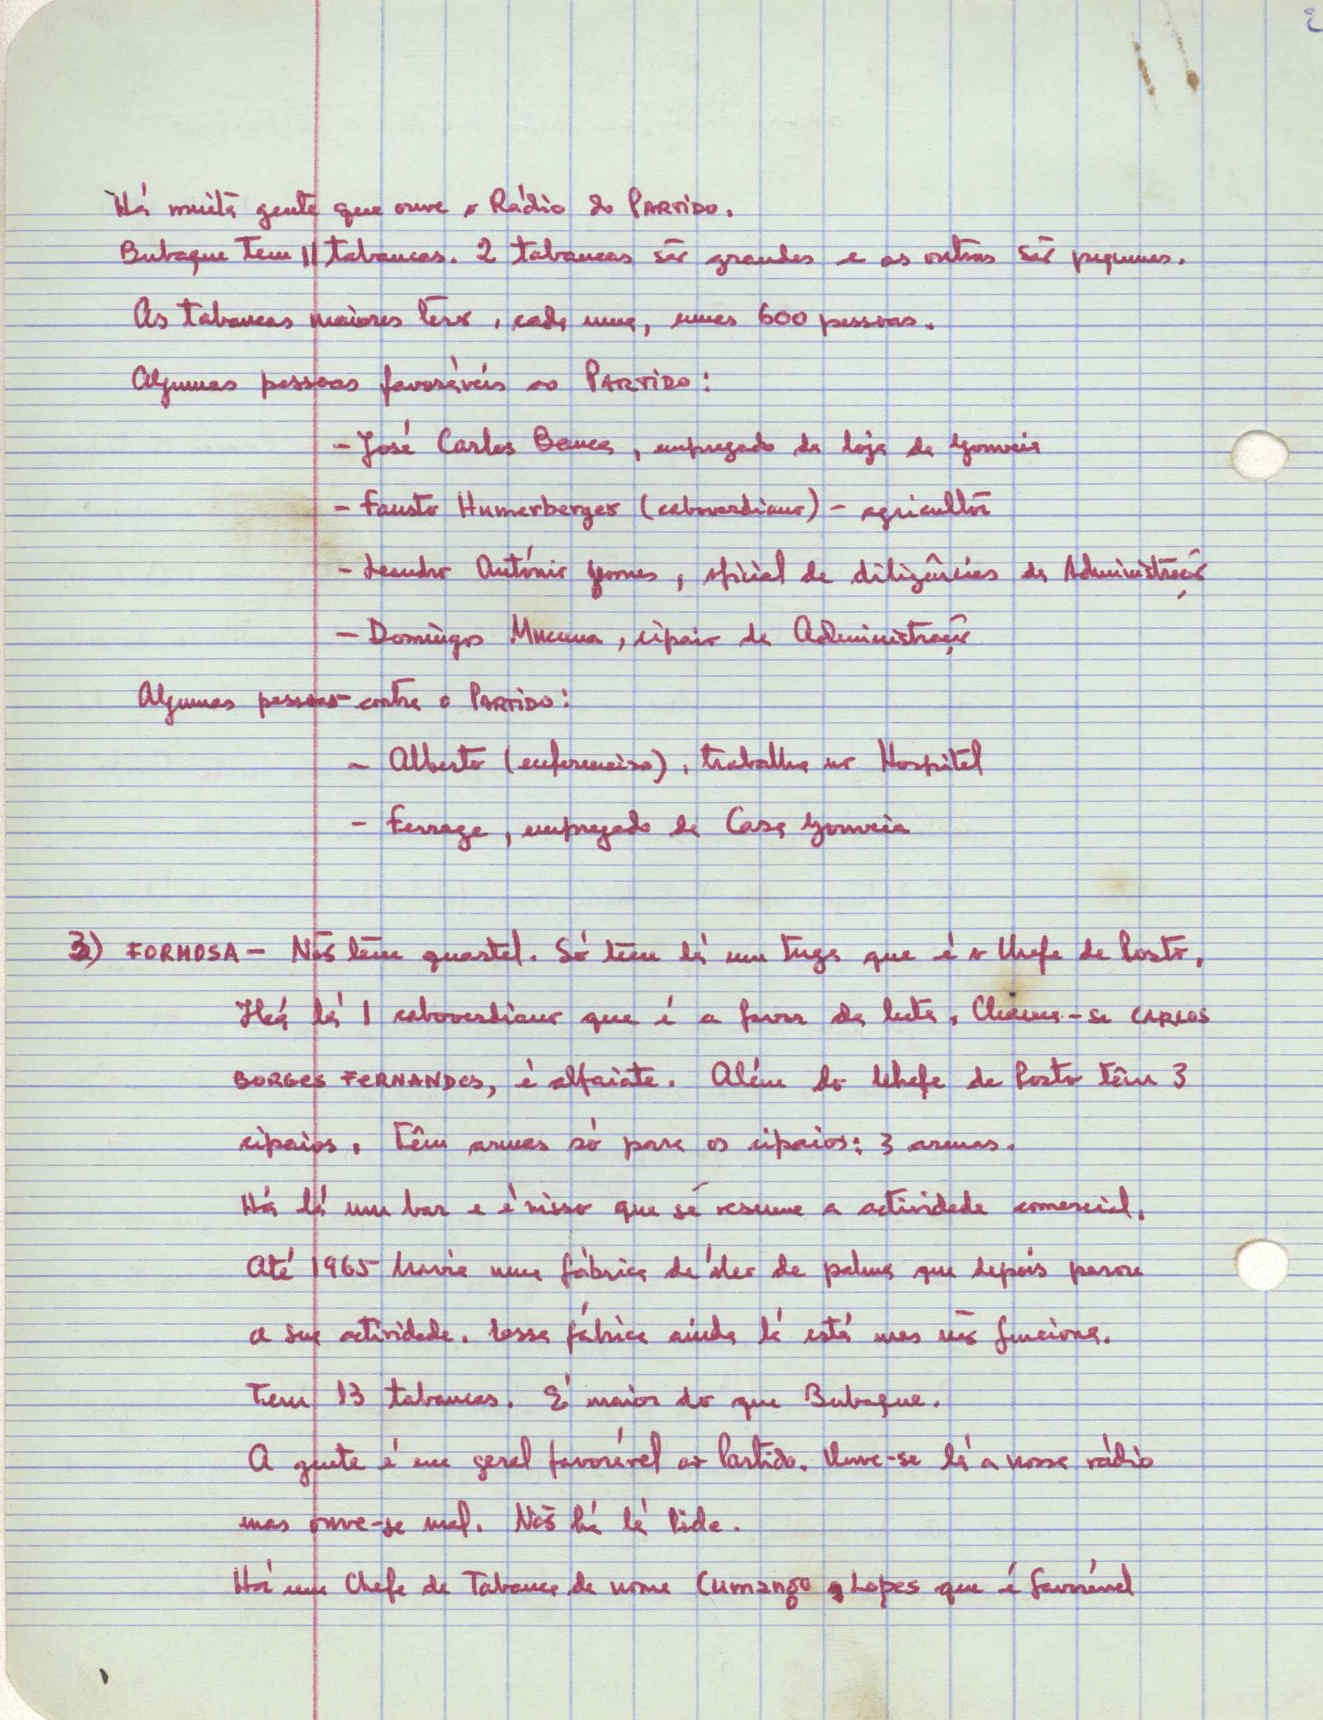 2
Há muita gente que ouve a Rádio do PARTIDO.
Bubaque tem 11 tabancas. 2 tabancas são grandes e as outras são pequenas.
As tabancas maiores têm, cada uma, umas 600 pessoas.
Algumas pessoas favoráveis ao PARTIDO:
- José Carlos , empregado da loja da Gouveia
- Fausto Humerberger (caboverdiano) - agricultor
- Leandro António Gomes, oficial de diligências da Administração
- Domingos Mucuna, cipaio da Administração
Algumas pessoas contra o PARTIDO:
- Alberto (enfermeiro), trabalha no Hospital
- Ferrage, empregado da Casa Gouveia
3) FORMOSA - Não têm quartel. Só têm lá um tuga que é o Chefe de Posto.
Há lá 1 caboverdiano que é a favor da luta. Chama-se CARLOS
BORGES FERNANDES, é alfaiate. Além do Chefe de Posto têm 3
cipaios. Têm armas só para os cipaios: 3 armas.
Há lá um bar e é nisso que se resume a actividade comercial.
Até 1965 havia uma fábrica de óleo de palma que depois parou
a sua actividade. Essa fábrica ainda lá está mas não funciona.
Tem 13 tabancas. É maior do que Bubaque.
A gente é em geral favorável ao Partido. Ouve-se lá a nossa rádio
mas ouve-se mal. Não há lá Pide.
Há um Chefe de Tabanca de nome Cumango Lopes que é favorável